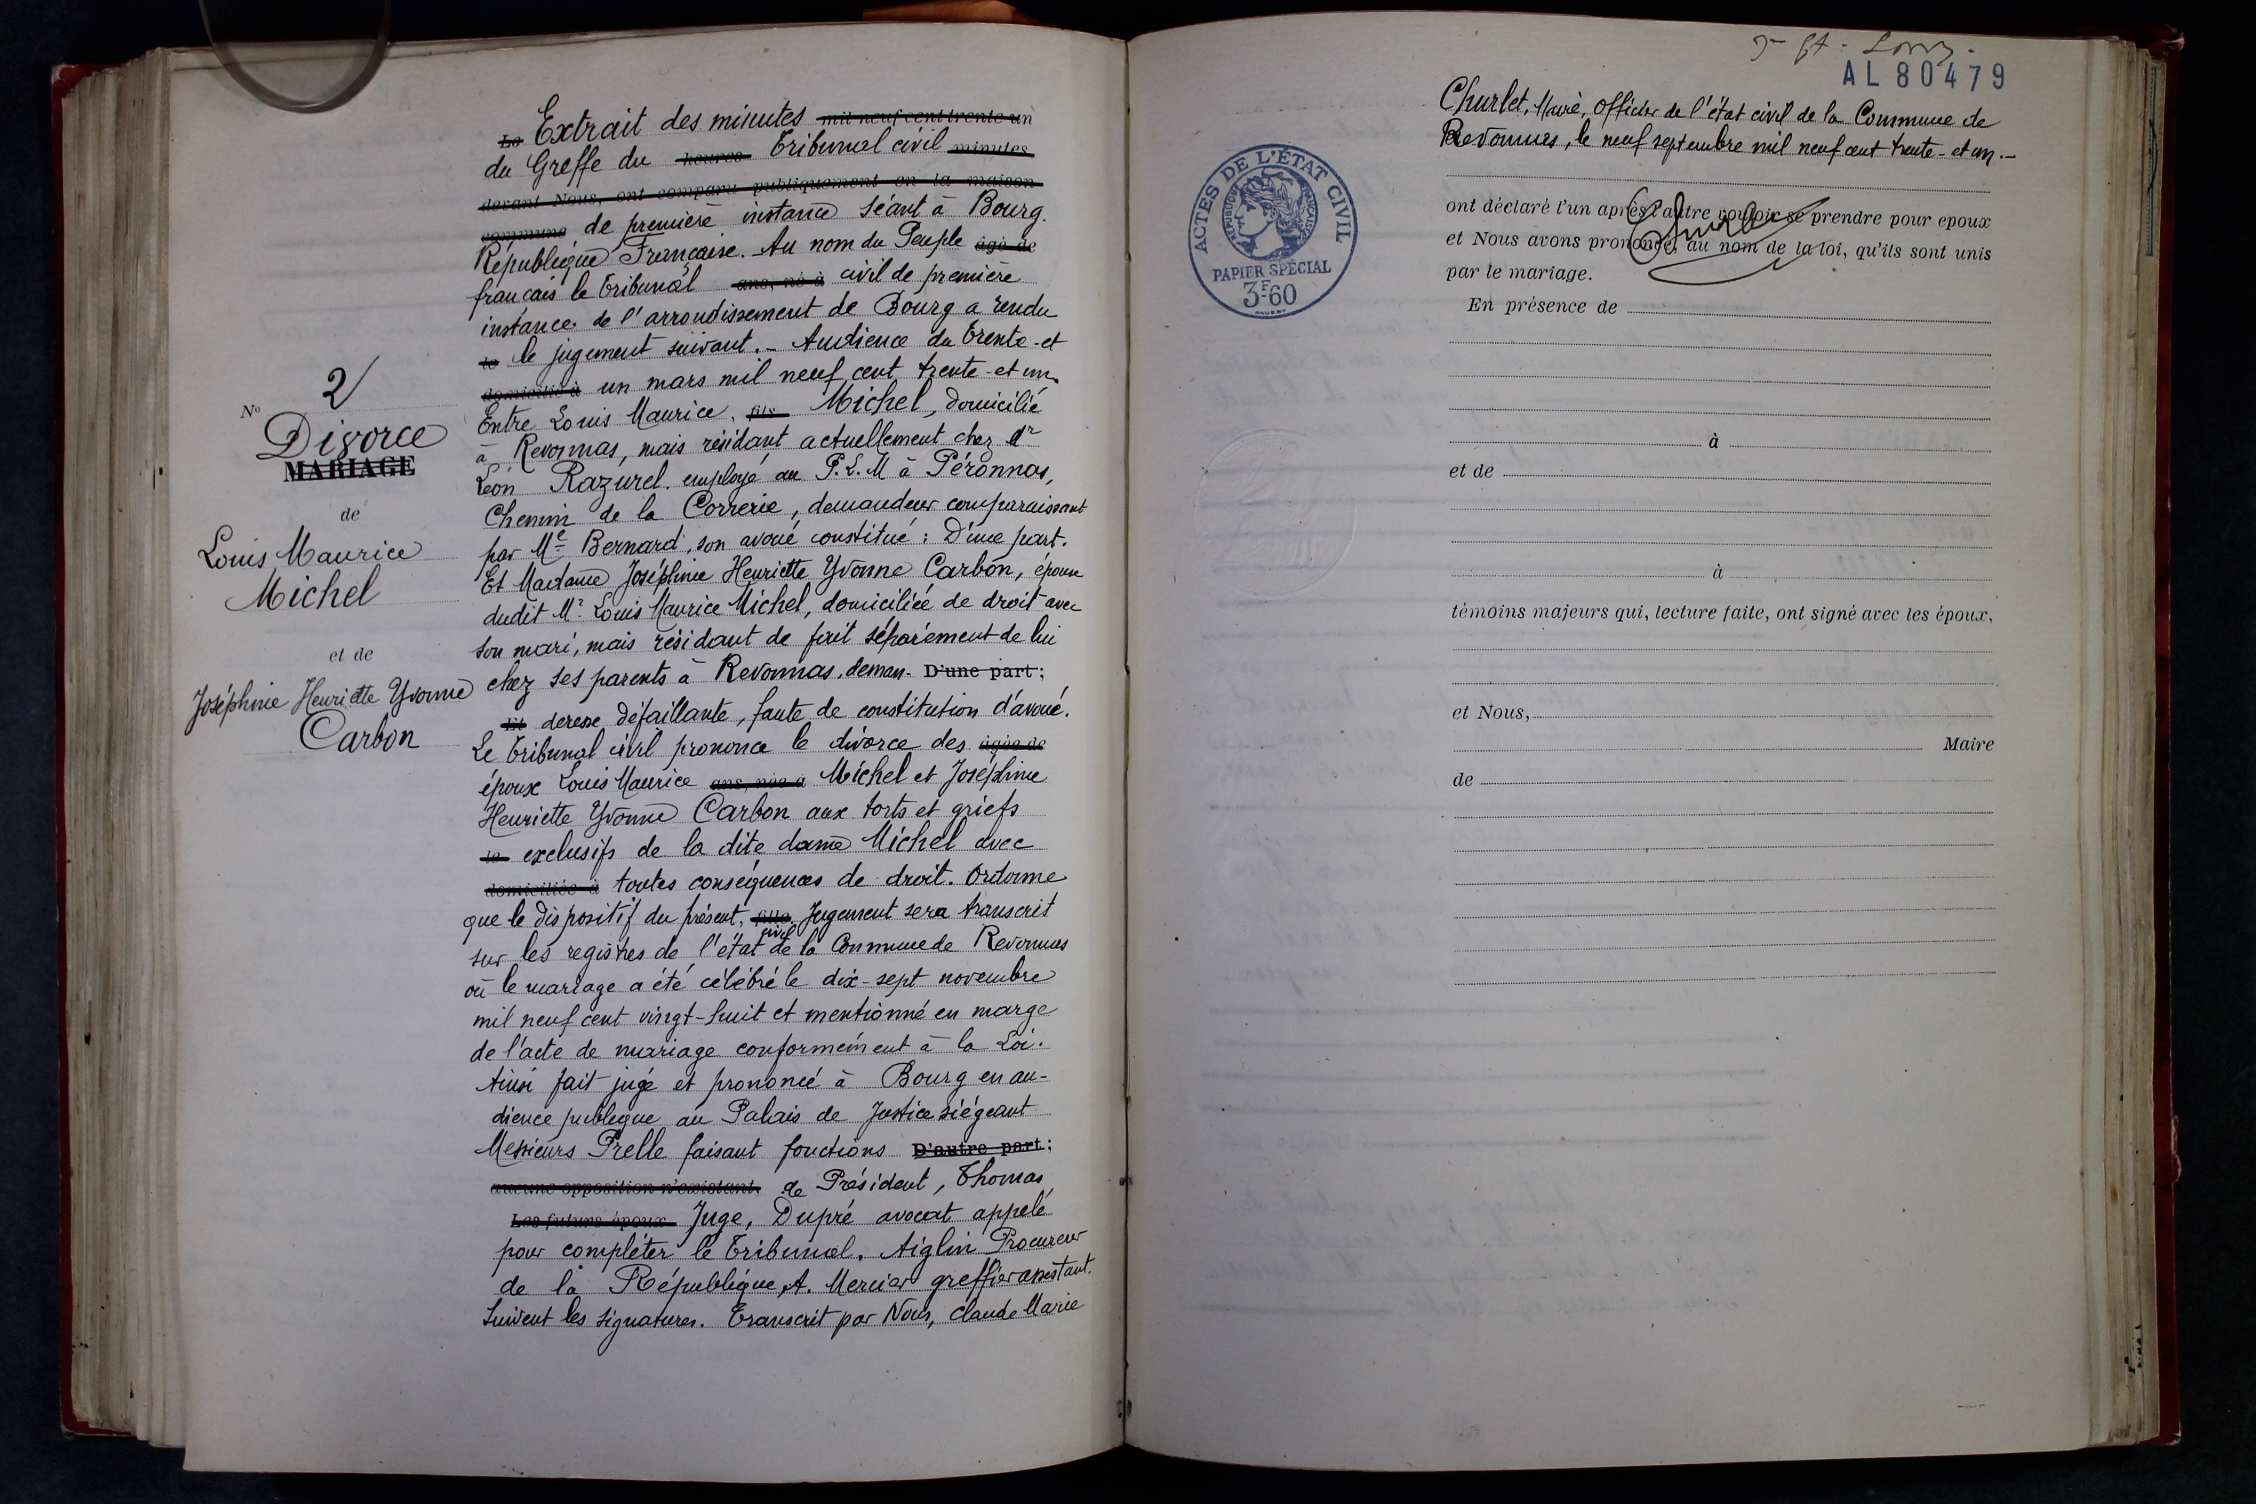 N° 2
Divorce
MARIAGE
de
Louis Maurice
Michel
et de
Joséphine Henriette Yvonne
Carbon
Le Extrait des minutes mil neuf cent trente un
du Greffe du heures Tribunal civil minutes
devant Nous, ont comparu publiquement en la maison
commune de première instance séant à Bourg.
République Française. Au nom du Peuple âgé de
français le Tribunal ans, né à civil de première
instance de l'arrondissement de Bourg a rendu
le le jugement suivant. - Audience du trente-et
domicilié à un mars mil neuf cent trente-et un.
Entre Louis Maurice, fils Michel, domicilié
à Revonnas, mais résidant actuellement chez Mr
Léon Razurel employé au P.L.M à Péronnas,
Chemin de la Correrie, demandeur comparaissant
par Me Bernard, son avoué constitué : D'une part.
Et Madame Joséphine Henriette Yvonne Carbon, épouse
dudit Mr. Louis Maurice Michel, domiciliée de droit avec
son mari, mais résidant de fait séparément de lui
chez ses parents à Revonnas, deman- D'une part ;
deresse défaillante, faute de constitution d'avoué.
Le Tribunal civil prononce le divorce des âgée de
époux Louis Maurice ans, née à Michel et Joséphine
Henriette Yvonne Carbon aux torts et griefs
le exclusifs de la dite dame Michel avec
domiciliée à toutes conséquences de droit. Ordonne
que le dispositif du présent, fille Jugement sera transcrit
sur les registres de l'état civil de la Commune de Revonnas
où le mariage a été célébré le dix-sept novembre
mil neuf cent vingt-huit et mentionné en marge
de l'acte de mariage conformément à la Loi.
Ainsi fait jugé et prononcé à Bourg en au-
dience publique au Palais de Justice siégeant
Messieurs Prelle faisant fonctions D'autre part ;
aucune opposition n'existant, de Président, Thomas
Les futurs époux Juge, Dupré avocat appelé
pour compléter le Tribunal. Aiglin Procureur
de la République, A. Mercier greffier assistant.
Suivent les signatures. Transcrit par Nous, Claude Marie
AL 80479
Churlet, Maire, officier de l'état civil de la Commune de
Revonnas, le neuf septembre mil neuf cent trente-et un.-
ACTES DE L'ÉTAT CIVIL
RÉPUBLIQUE FRANÇAISE
PAPIER SPÉCIAL
3F60
ont déclaré l'un après l'autre vouloir se prendre pour epoux
et Nous avons prononcé, au nom de la loi, qu'ils sont unis
par le mariage.
En présence de
à
et de
à
témoins majeurs qui, lecture faite, ont signé avec les époux,
et Nous,
Maire
de